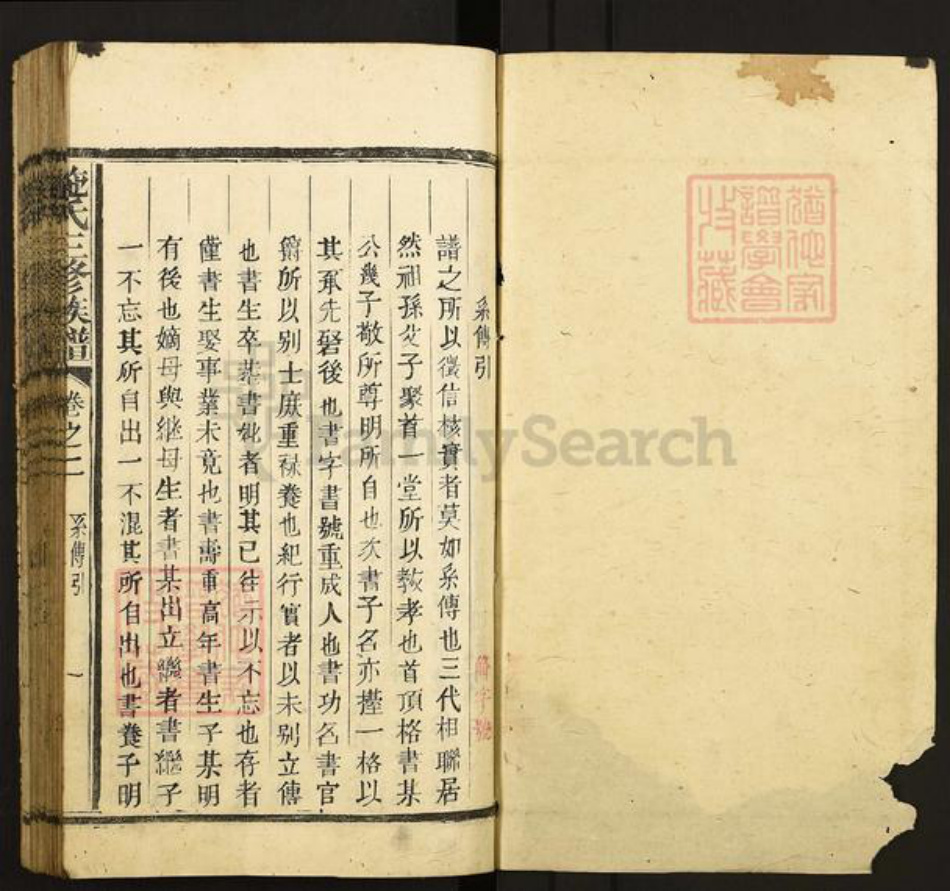 系傳引
譜之所以徵信核實者莫如系傳也三代相聯居
然祖孫父子聚首一堂所以教孝也首頂格書某
公幾子敬所尊明所自也次書子名亦擡一格以
其承先啓後也書字書號重成人也書功名書官
爵所以别士庶重祿養也紀行實者以未别立傳
也書生卒葬書妣者明其已往示以不忘也存者
僅書生娶事業未竟也書壽重高年書生子某明
有後也嫡母與繼母生者書某出立繼者書繼子
一不忘其所自出一不混其所自出也書養子明
施氏三修族譜 卷之二 系傳引 一
譜學會
收藏
字號
FamilySearch